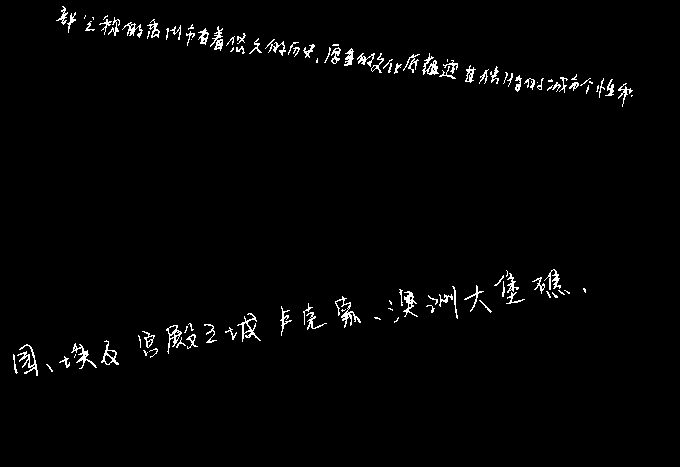 都之称的禹州市有着悠久的历史,厚重的文化底蕴造其独特的城市个性和
国、埃及宫殿之城卢克索、澳洲大堡礁,